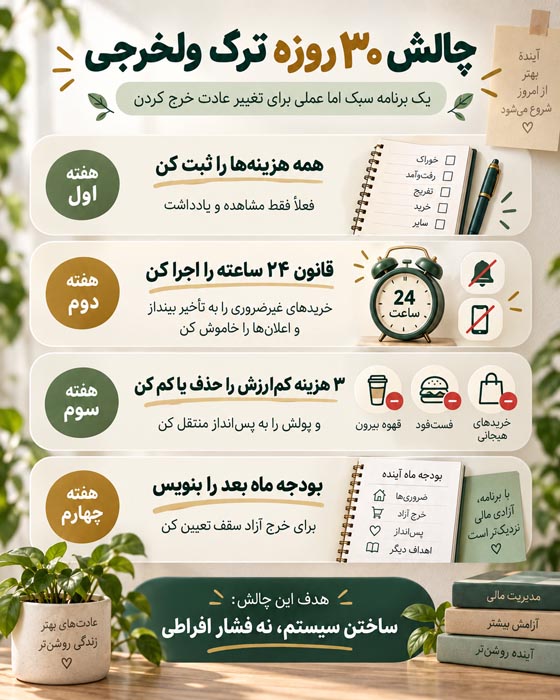 چالش ۳۰ روزه ترک ولخرجی
یک برنامه سبک اما عملی برای تغییر عادت خرج کردن
آیندهٔ
بهتر
از امروز
شروع می‌شود
هفته
اول
همه هزینه‌ها را ثبت کن
فعلاً فقط مشاهده و یادداشت
خوراک
رفت‌وآمد
تفریح
خرید
سایر
هفته
دوم
قانون ۲۴ ساعته را اجرا کن
خریدهای غیرضروری را به تأخیر بینداز
و اعلان‌ها را خاموش کن
24
ساعت
هفته
سوم
۳ هزینه کم‌ارزش را حذف یا کم کن
و پولش را به پس‌انداز منتقل کن
خریدهای
هیجانی
فست‌فود
قهوه بیرون
هفته
چهارم
بودجه ماه بعد را بنویس
برای خرج آزاد سقف تعیین کن
بودجه ماه آینده
ضروری‌ها
خرج آزاد
پس‌انداز
اهداف دیگر
با برنامه،
آزادی مالی
نزدیک‌تر است
هدف این چالش:
ساختن سیستم، نه فشار افراطی
عادت‌های بهتر
زندگی روشن‌تر
مدیریت مالی
آرامش بیشتر
آینده روشن‌تر